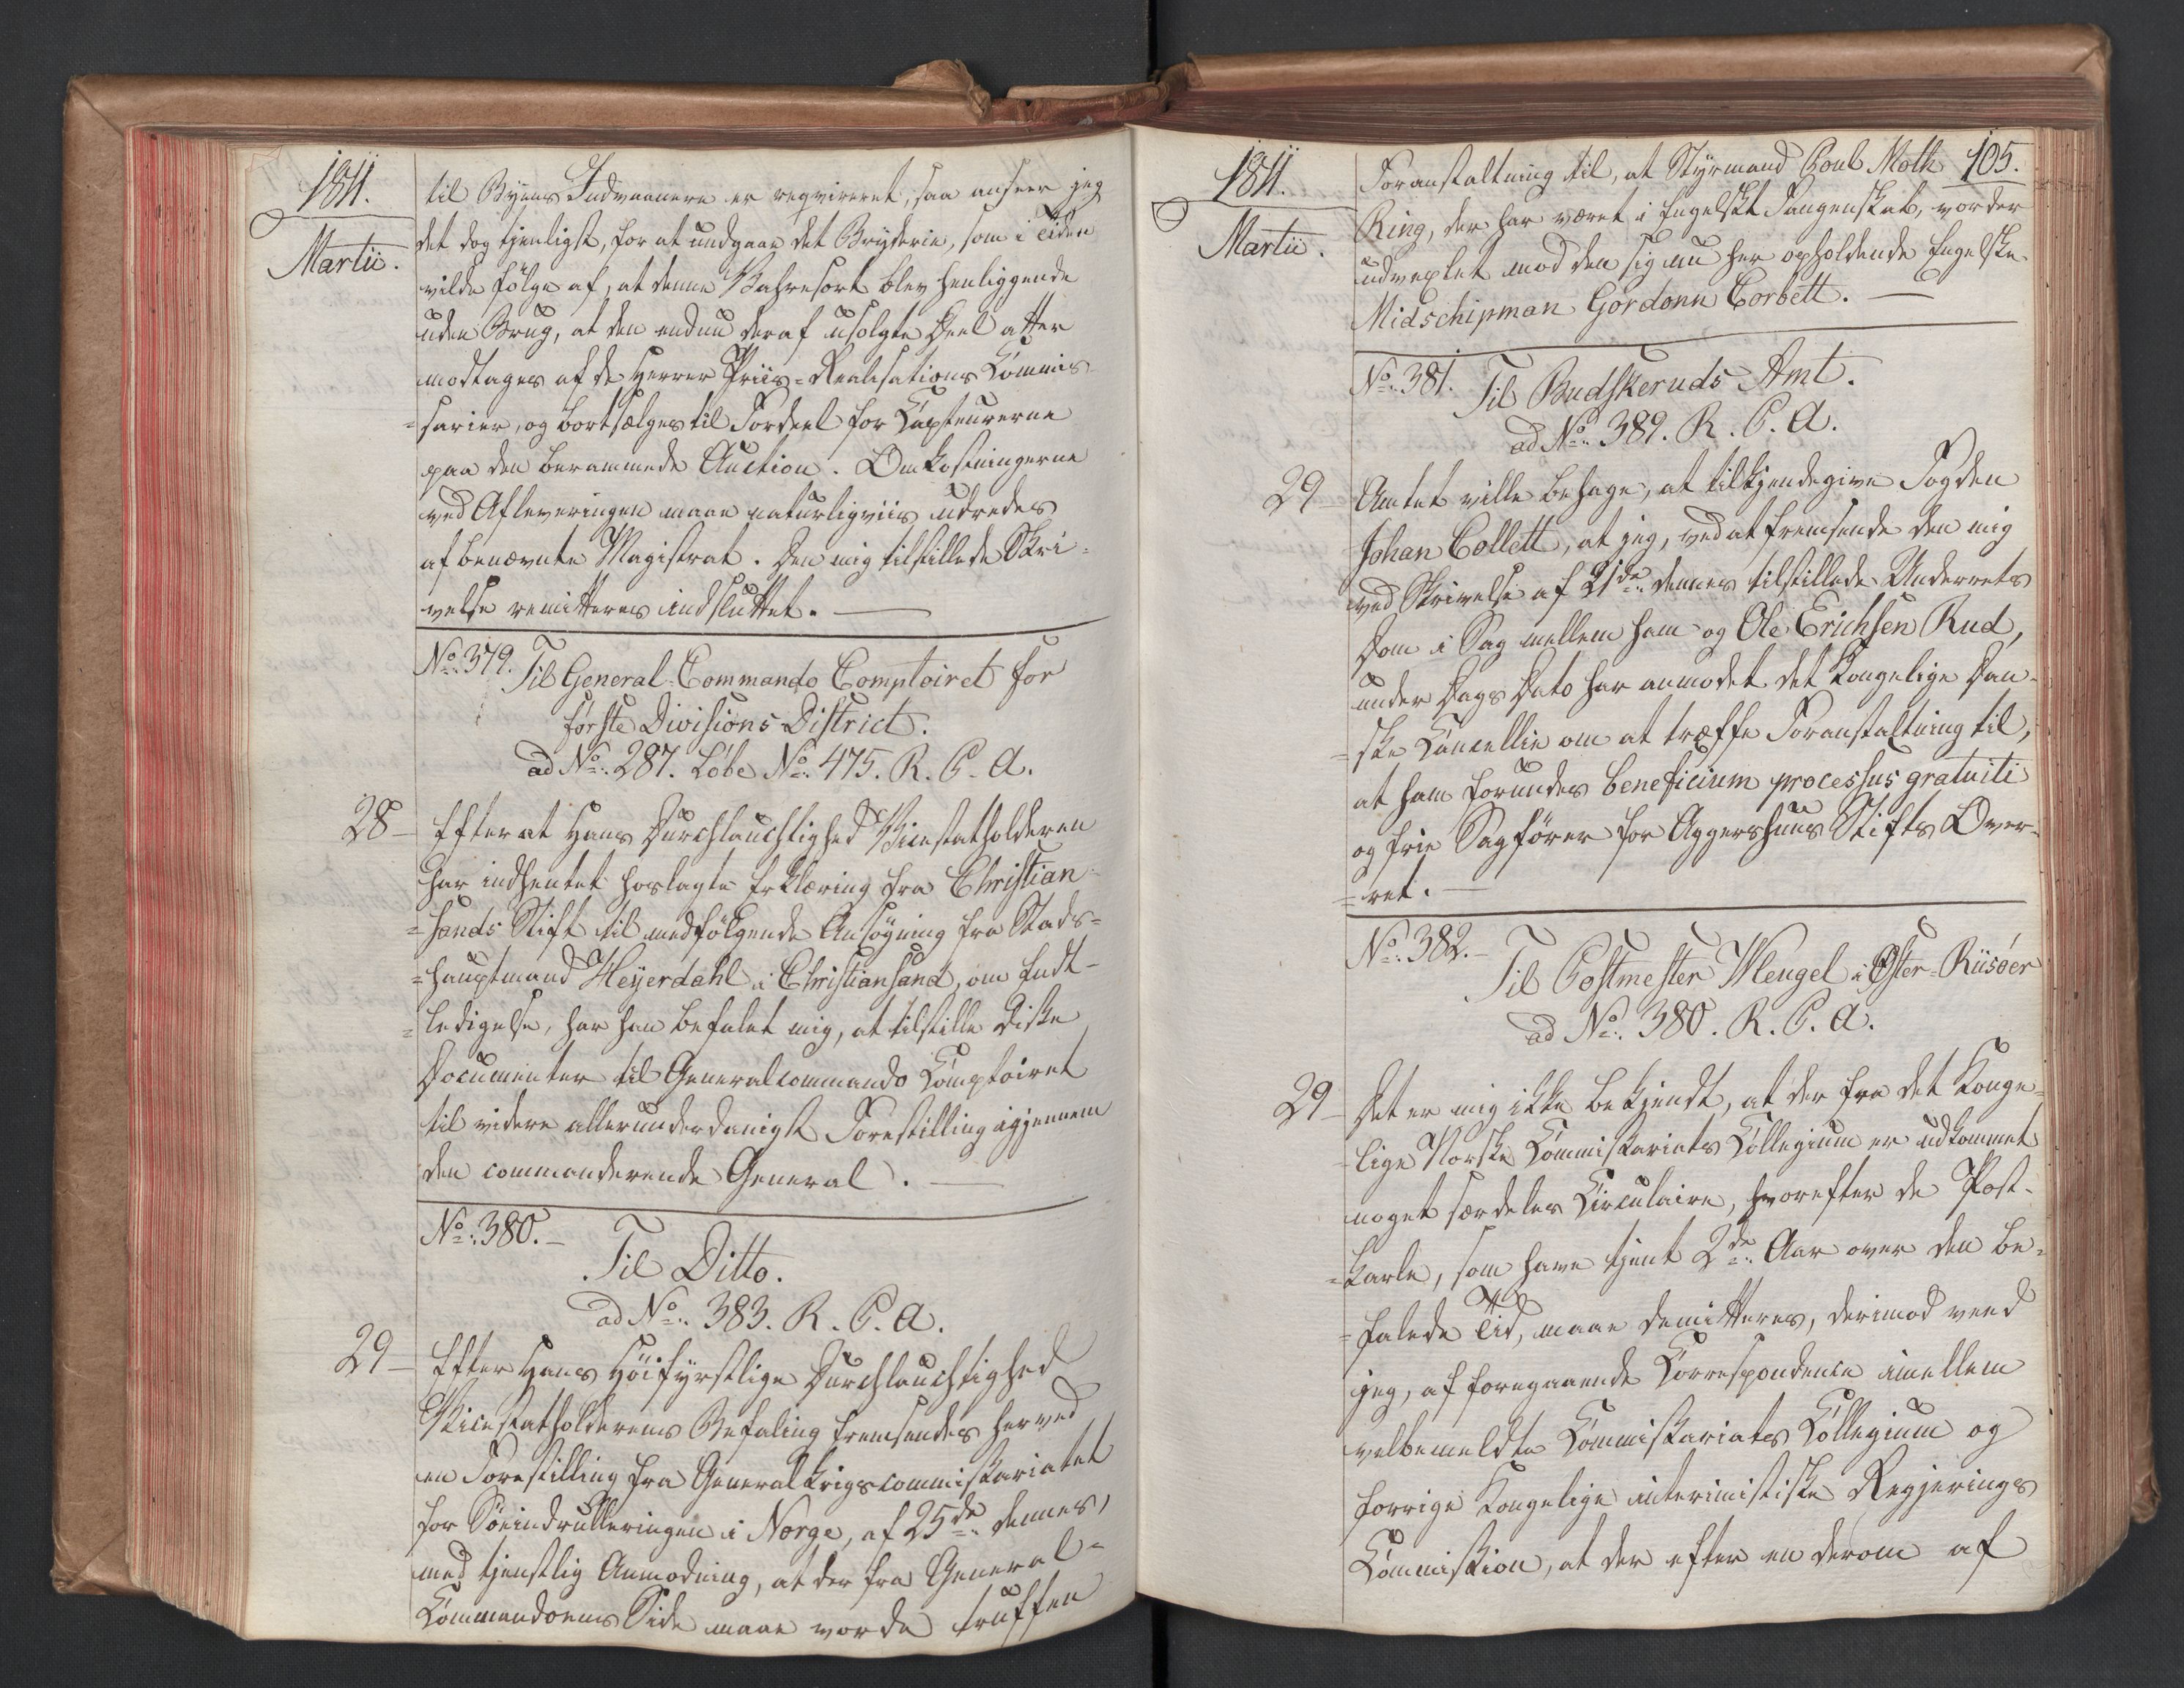 1811.
Martii.
til Byens Indvaanere er reqvireret, saa anseer jeg
det dog tjenligst, for at undgaae det Bryderie, som i Tiden
vilde følge af, at denne Vahresort blev henliggende
uden Brug, at den endnu deraf usolgte Deel atter
modtages af de Herrer Priis-Realisations Commis-
=sarier, og bortsælges til Fordeel for Capteurerne
paa den berammede Auction. Omkostningerne
ved Afleveringen maae naturligviis udredes
af benævnte Magistrat. Den mig tilstillede Skri-
velse remitteres indsluttet. —
No. 379. Til General-Commando Comptoiret for
første Divisions District.
ad No. 287. Løbe No. 475. R. P. A.
28 — Efter at Hans Durchlauchtighed Vicestatholderen
har indhentet hoslagte Erklæring fra Christian-
=sands Stift til medfølgende Ansøgning fra Stads-
=hauptmand Heyerdahl i Christiansand, om Endt-
=ledigelse, har han befalet mig, at tilstille diske
Documenter til Generalcommando Comptoiret
til videre allerunderdanigst Forestilling igjennem
den commanderende General. —
No. 380. —
Til Ditto.
ad No. 383. R. P. A.
29 — Efter Hans Høifyrstlige Durchlauchtighed
Vicestatholderens Befaling fremsendes herved
en Forestilling fra Generalkrigscommissariatet
for Søeindrulleringen i Norge, af 25de dennes,
med tjenstlig Anmodning, at der fra General-
Commandoens Side maae vorde truffen
1811.
Martii.
105.
Foranstaltning til, at Styrmand Poul Moth
Ring, der har været i Engelsk Fangenskab, vorder
udvexlet mod den sig nu her opholdende Engelske
Midschipman Gordonn Corbett. —
No. 381. Til Budskeruds Amt.
ad No. 389. R. P. A.
29 — Amtet ville behage, at tilkjendegive Fogden
Johan Collett, at jeg, ved at fremsende den mig
ved Skrivelse af 21de dennes tilstillede Underrets
Dom i Sag mellem ham og Ole Erichsen Rud,
under Dags Dato har anmodet det Kongelige Dan-
=ske Cancellie om at træffe Foranstaltning til,
at ham forundes beneficium processus gratuiti
og frie Sagfører for Aggershuus Stifts Over-
=ret. —
No. 382. —
Til Postmester Wengel i Øster-Riisøer
ad No. 380. R. P. A.
29 — Det er mig ikke bekjendt, at der fra det Konge-
lige Norske Commissariats Collegium er udkommet
noget særdeles Circulaire, hvorefter de Post-
=karle, som have tjent 2de Aar over den be-
=falede Tid, maae demitteres, derimod veed
jeg, af foregaaende Correspondence imellem
velbemeldte Commissariats Collegium og
forrige Kongelige interimistiske Regjerings
Commission, at der efter en derom af